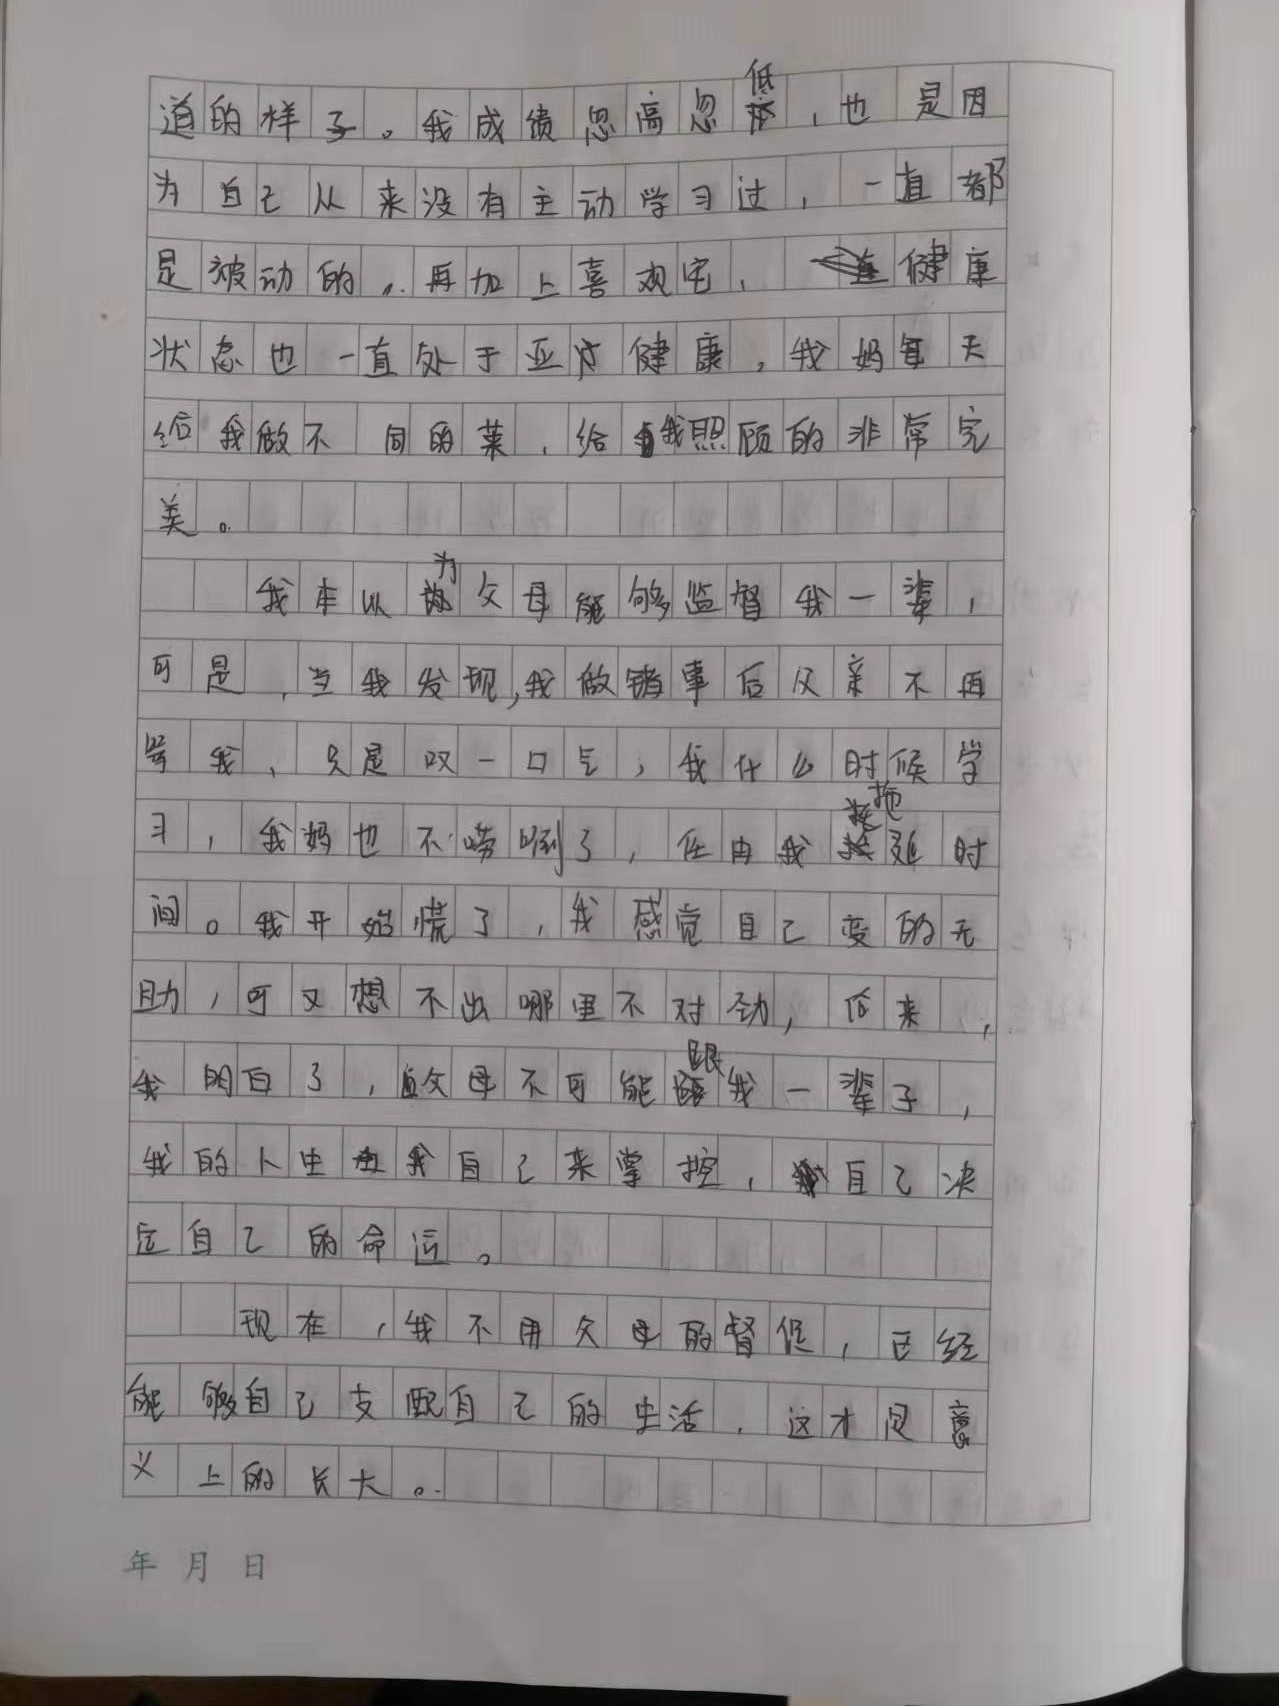 道的样子。我成绩忽高忽低，也是因
为自己从来没有主动学习过，一直都
是被动的。再加上喜欢宅，健康
状态也一直处于亚健康，我妈每天
给我做不同的菜，给我照顾的非常完
美。
我本以为父母能够监督我一辈，
可是，当我发现，我做错事后父亲不再
骂我，只是叹一口气，我什么时候学
习，我妈也不唠叨了，任由我拖延时
间。我开始慌了，我感觉自己变的无
助，可又想不出哪里不对劲，后来，
我明白了，父母不可能跟我一辈子，
我的人生由我自己来掌控，自己决
定自己的命运。
现在，我不用父母的督促，已经
能够自己支配自己的生活，这才是意
义上的长大。
年 月 日